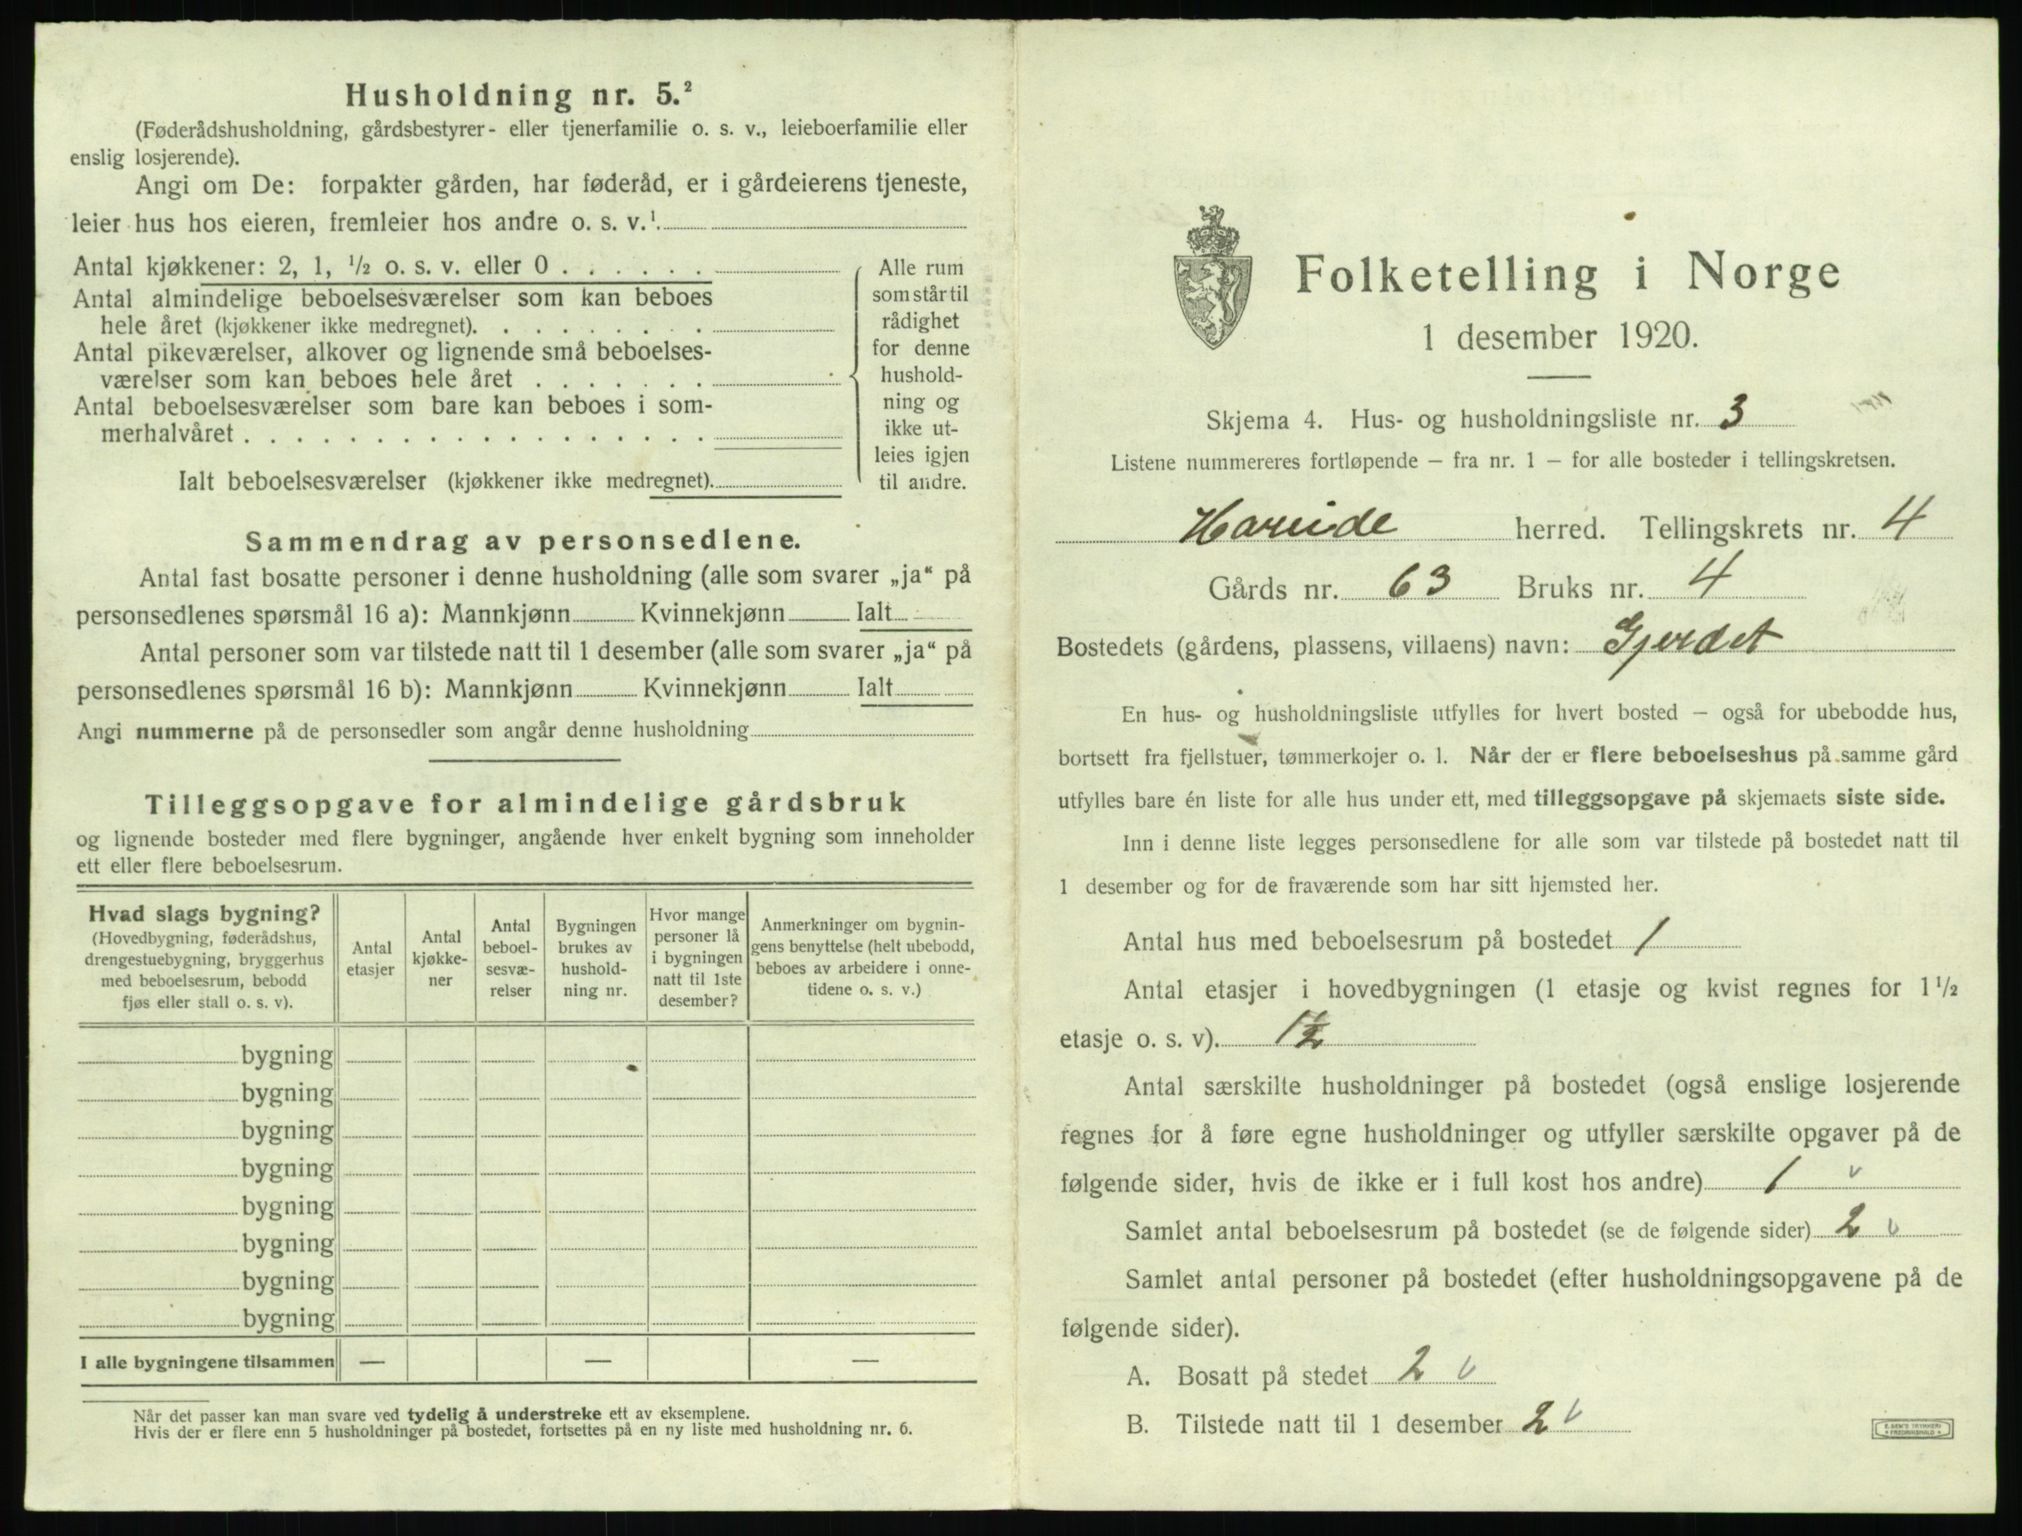 Husholdning nr. 5.²
(Føderådshusholdning, gårdsbestyrer- eller tjenerfamilie o. s. v., leieboerfamilie eller
enslig losjerende).
Angi om De: forpakter gården, har føderåd, er i gårdeierens tjeneste,
leier hus hos eieren, fremleier hos andre o. s. v.¹
Antal kjøkkener: 2, 1, ½ o. s. v. eller 0 . . . . . .
Antal almindelige beboelsesværelser som kan beboes
hele året (kjøkkener ikke medregnet). . . . . . . . .
Antal pikeværelser, alkover og lignende små beboelses-
værelser som kan beboes hele året . . . . . . .
Antal beboelsesværelser som bare kan beboes i som-
merhalvåret . . . . . . . . . . . . . . . . . .
Ialt beboelsesværelser (kjøkkener ikke medregnet).
Alle rum
som står til
rådighet
for denne
hushold-
ning og
ikke ut-
leies igjen
til andre.
Sammendrag av personsedlene.
Antal fast bosatte personer i denne husholdning (alle som svarer „ja“ på
personsedlenes spørsmål 16 a): Mannkjønn Kvinnekjønn Ialt
Antal personer som var tilstede natt til 1 desember (alle som svarer „ja“ på
personsedlenes spørsmål 16 b): Mannkjønn Kvinnekjønn Ialt
Angi nummerne på de personsedler som angår denne husholdning
Tilleggsopgave for almindelige gårdsbruk
og lignende bosteder med flere bygninger, angående hver enkelt bygning som inneholder
ett eller flere beboelsesrum.
Hvad slags bygning?
(Hovedbygning, føderådshus,
drengestuebygning, bryggerhus
med beboelsesrum, bebodd
fjøs eller stall o. s. v).
Antal
etasjer
Antal
kjøkke-
ner
Antal
beboel-
sesvæ-
relser
Bygningen
brukes av
hushold-
ning nr.
Hvor mange
personer lå
i bygningen
natt til 1ste
desember?
Anmerkninger om bygnin-
gens benyttelse (helt ubebodd,
beboes av arbeidere i onne-
tidene o. s. v.)
bygning
bygning
bygning
bygning
bygning
bygning
bygning
bygning
I alle bygningene tilsammen — — —
Når det passer kan man svare ved tydelig å understreke ett av eksemplene.
Hvis der er flere enn 5 husholdninger på bostedet, fortsettes på en ny liste med husholdning nr. 6.
Folketelling i Norge
1 desember 1920.
Skjema 4. Hus- og husholdningsliste nr. 3
Listene nummereres fortløpende – fra nr. 1 – for alle bosteder i tellingskretsen.
Hareide herred. Tellingskrets nr. 4
Gårds nr. 63 Bruks nr. 4
Bostedets (gårdens, plassens, villaens) navn: Gjerdet
En hus- og husholdningsliste utfylles for hvert bosted – også for ubebodde hus,
bortsett fra fjellstuer, tømmerkojer o. l. Når der er flere beboelseshus på samme gård
utfylles bare én liste for alle hus under ett, med tilleggsopgave på skjemaets siste side.
Inn i denne liste legges personsedlene for alle som var tilstede på bostedet natt til
1 desember og for de fraværende som har sitt hjemsted her.
Antal hus med beboelsesrum på bostedet 1
Antal etasjer i hovedbygningen (1 etasje og kvist regnes for 1½
etasje o. s. v). 1½
Antal særskilte husholdninger på bostedet (også enslige losjerende
regnes for å føre egne husholdninger og utfyller særskilte opgaver på de
følgende sider, hvis de ikke er i full kost hos andre) 1 v
Samlet antal beboelsesrum på bostedet (se de følgende sider) 2 v
Samlet antal personer på bostedet (efter husholdningsopgavene på de
følgende sider).
A. Bosatt på stedet 2 v
B. Tilstede natt til 1 desember 2 v
E. SEM'S TRYKKERI
FREDRIKSHALD